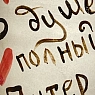 душе
полный
Питер